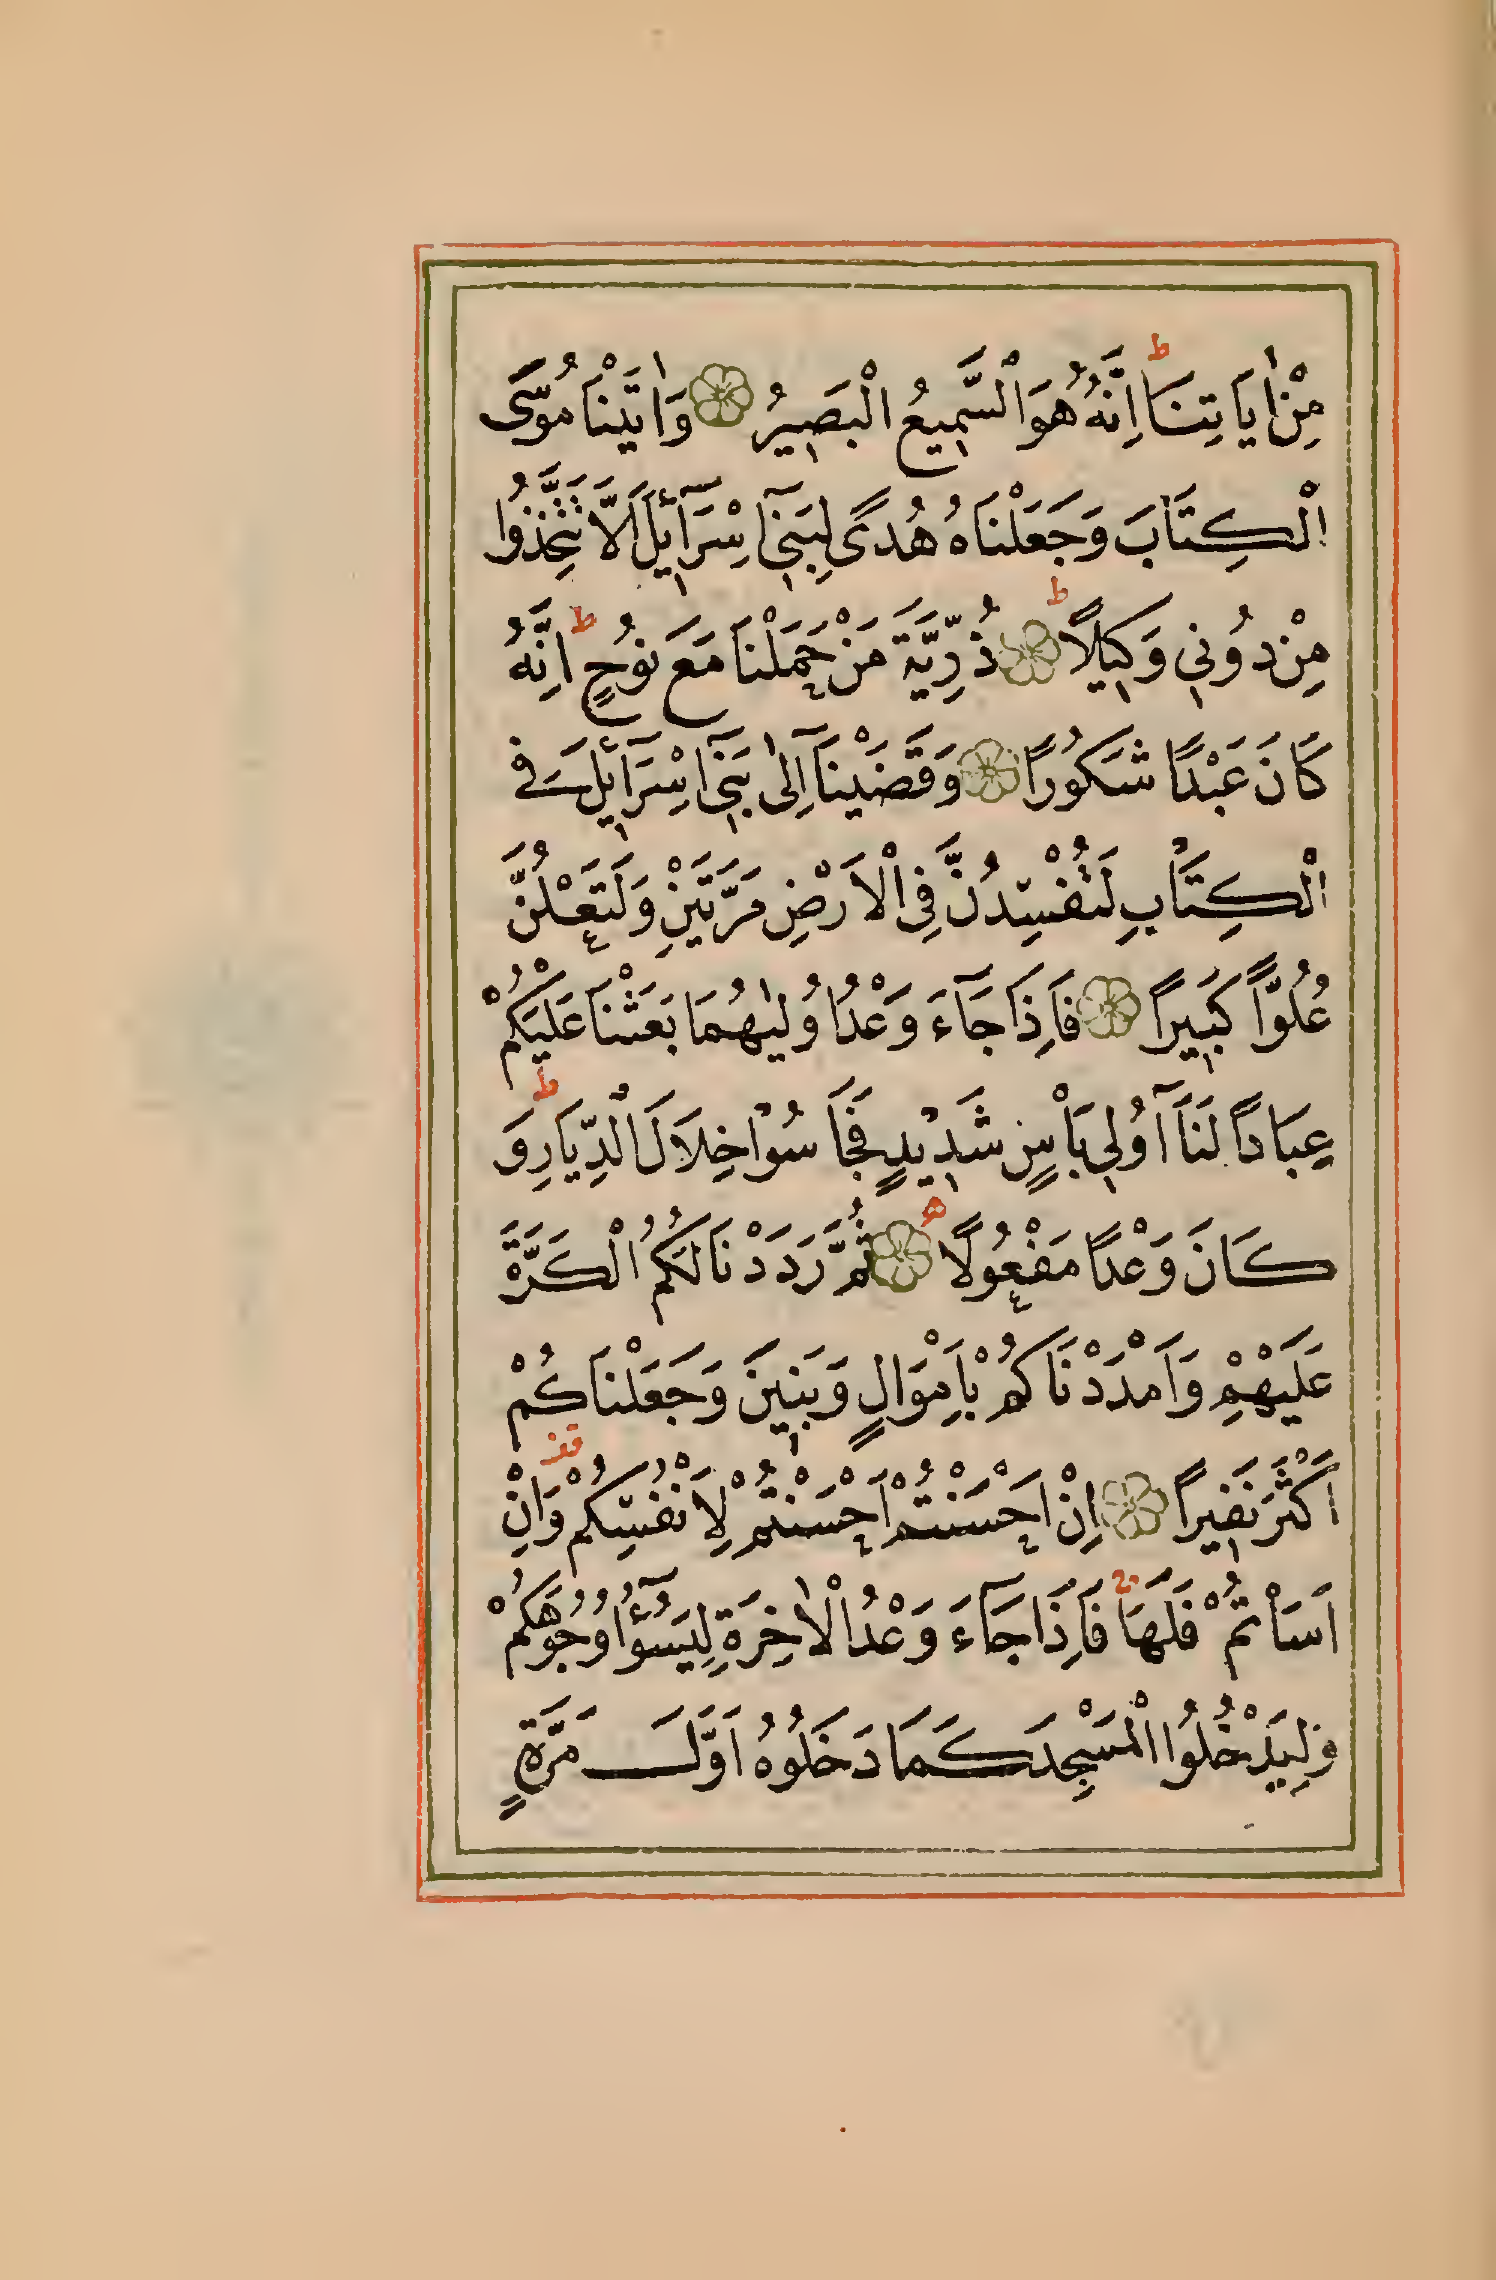 مِنْ اٰيَاتِنَا ط اِنَّهُ هُوَ السَّمِيعُ الْبَصِيرُ وَاٰتَيْنَا مُوسَى
الْكِتَابَ وَجَعَلْنَاهُ هُدًى لِبَنِٓى اِسْرَٓائِلَ اَلَّا تَتَّخِذُوا
مِنْ دُونِي وَكِيلًا ط ذُرِّيَّةَ مَنْ حَمَلْنَا مَعَ نُوحٍ ط اِنَّهُ
كَانَ عَبْدًا شَكُورًا وَقَضَيْنَٓا اِلٰى بَنِٓى اِسْرَٓائِلَ فِي
الْكِتَابِ لَتُفْسِدُنَّ فِي الْاَرْضِ مَرَّتَيْنِ وَلَتَعْلُنَّ
عُلُوًّا كَبِيرًا فَاِذَا جَٓاءَ وَعْدُ اُولٰيهُمَا بَعَثْنَا عَلَيْكُمْ
عِبَادًا لَنَٓا اُولِي بَأْسٍ شَدِيدٍ فَجَاسُوا خِلَالَ الدِّيَارِ ط وَ
كَانَ وَعْدًا مَفْعُولًا ثُمَّ رَدَدْنَا لَكُمُ الْكَرَّةَ
عَلَيْهِمْ وَاَمْدَدْنَاكُمْ بِاَمْوَالٍ وَبَنِينَ وَجَعَلْنَاكُمْ
اَكْثَرَ نَفِيرًا اِنْ اَحْسَنْتُمْ اَحْسَنْتُمْ لِاَنْفُسِكُمْ وَاِنْ
اَسَأْتُمْ فَلَهَا فَاِذَا جَٓاءَ وَعْدُ الْاٰخِرَةِ لِيَسُٓؤُا وُجُوهَكُمْ
وَلِيَدْخُلُوا الْمَسْجِدَ كَمَا دَخَلُوهُ اَوَّلَ مَرَّةٍ